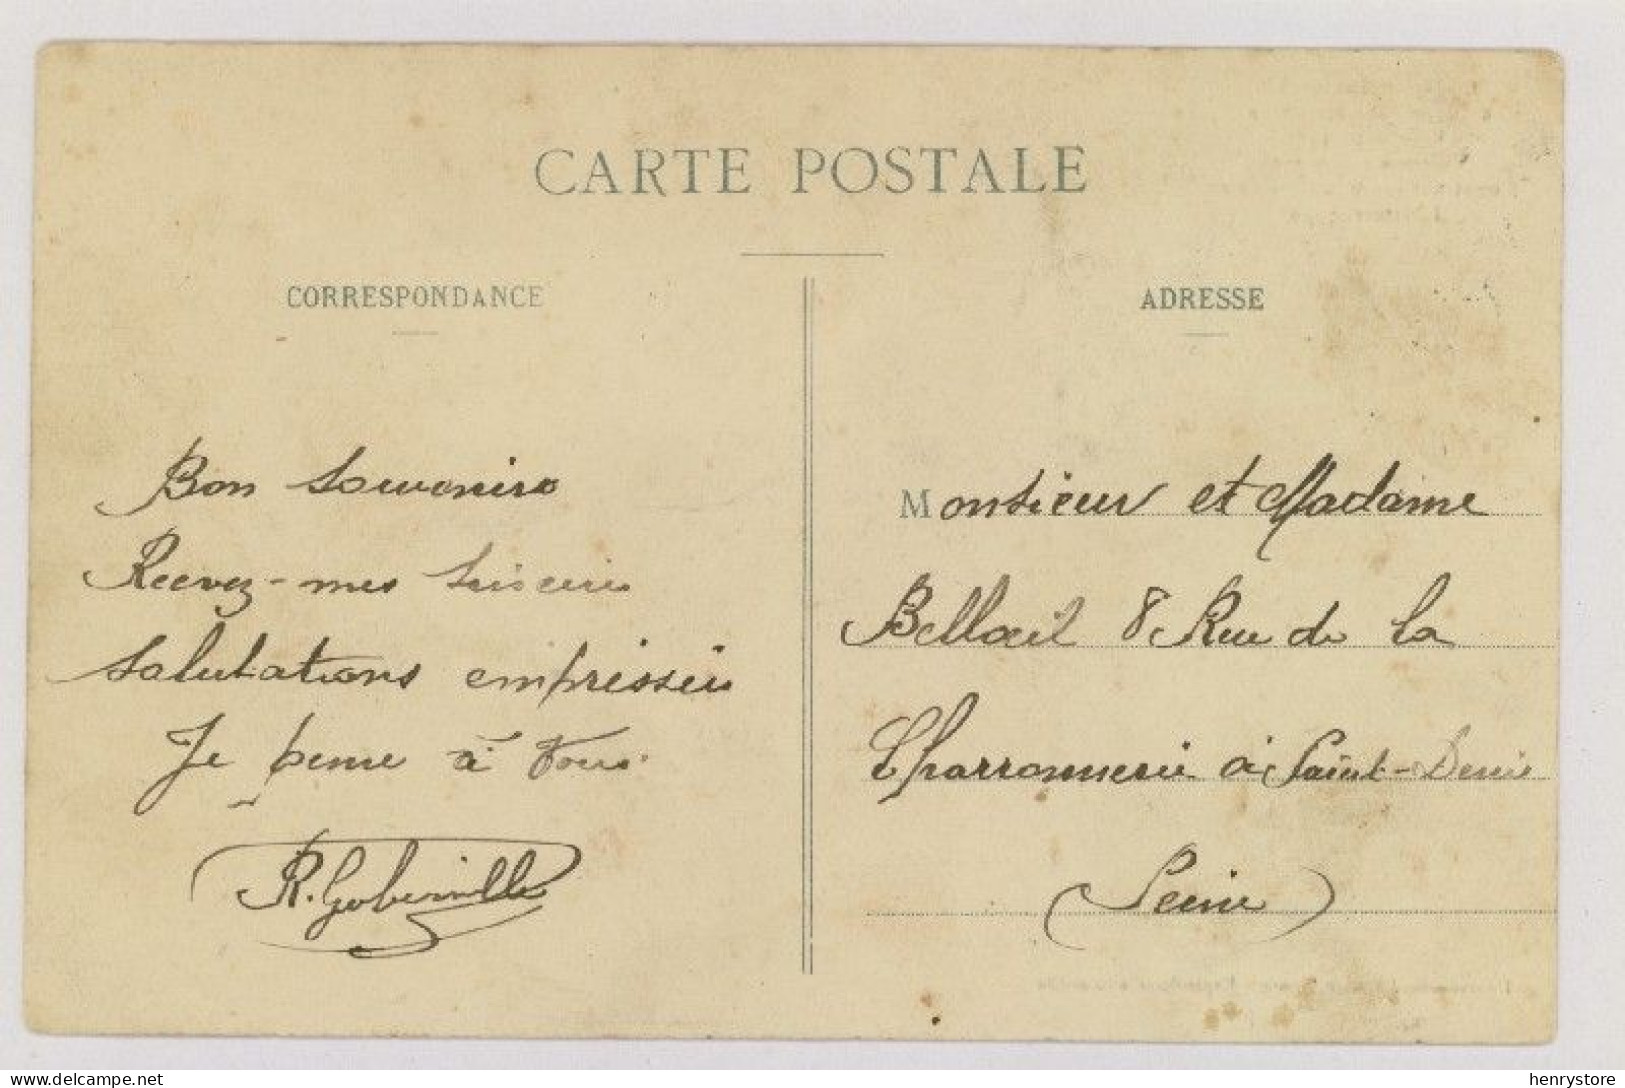 CARTE POSTALE
CORRESPONDANCE
ADRESSE
Bon souvenirs
Recevez-mes sincères
salutations empressées
Je pense à vous.
R. Goberville
Monsieur et Madame
Belloeil 8 Rue de la
Charronnerie à Saint-Denis
(Seine)
www.delcampe.net
henrystore